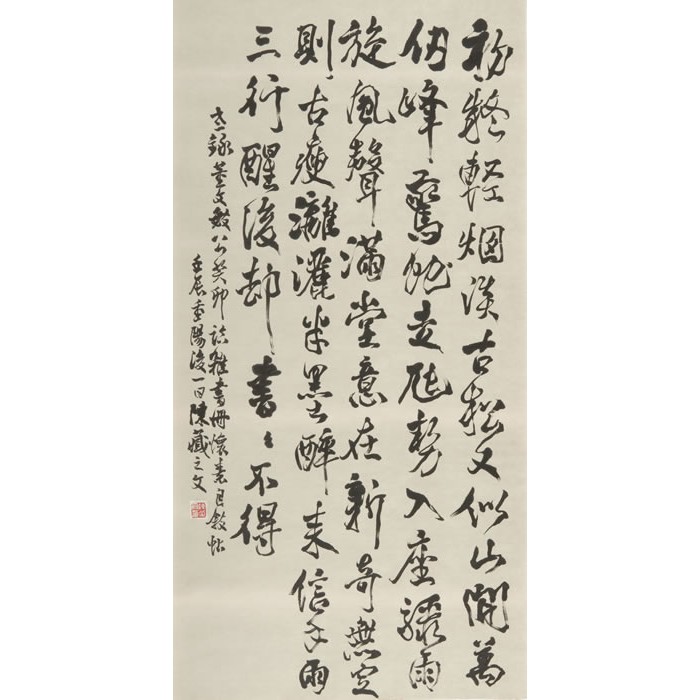 初疑輕烟淡古松又似山開萬
仞峰驚蛇走虺勢入座驟雨
旋風聲滿堂意在新奇無定
則古瘦灕灑半墨醉來信手兩
三行醒後却書〻不得
錄董文敏公癸卯雜書冊懷素自敘帖
壬辰重陽後一日陳藏之文